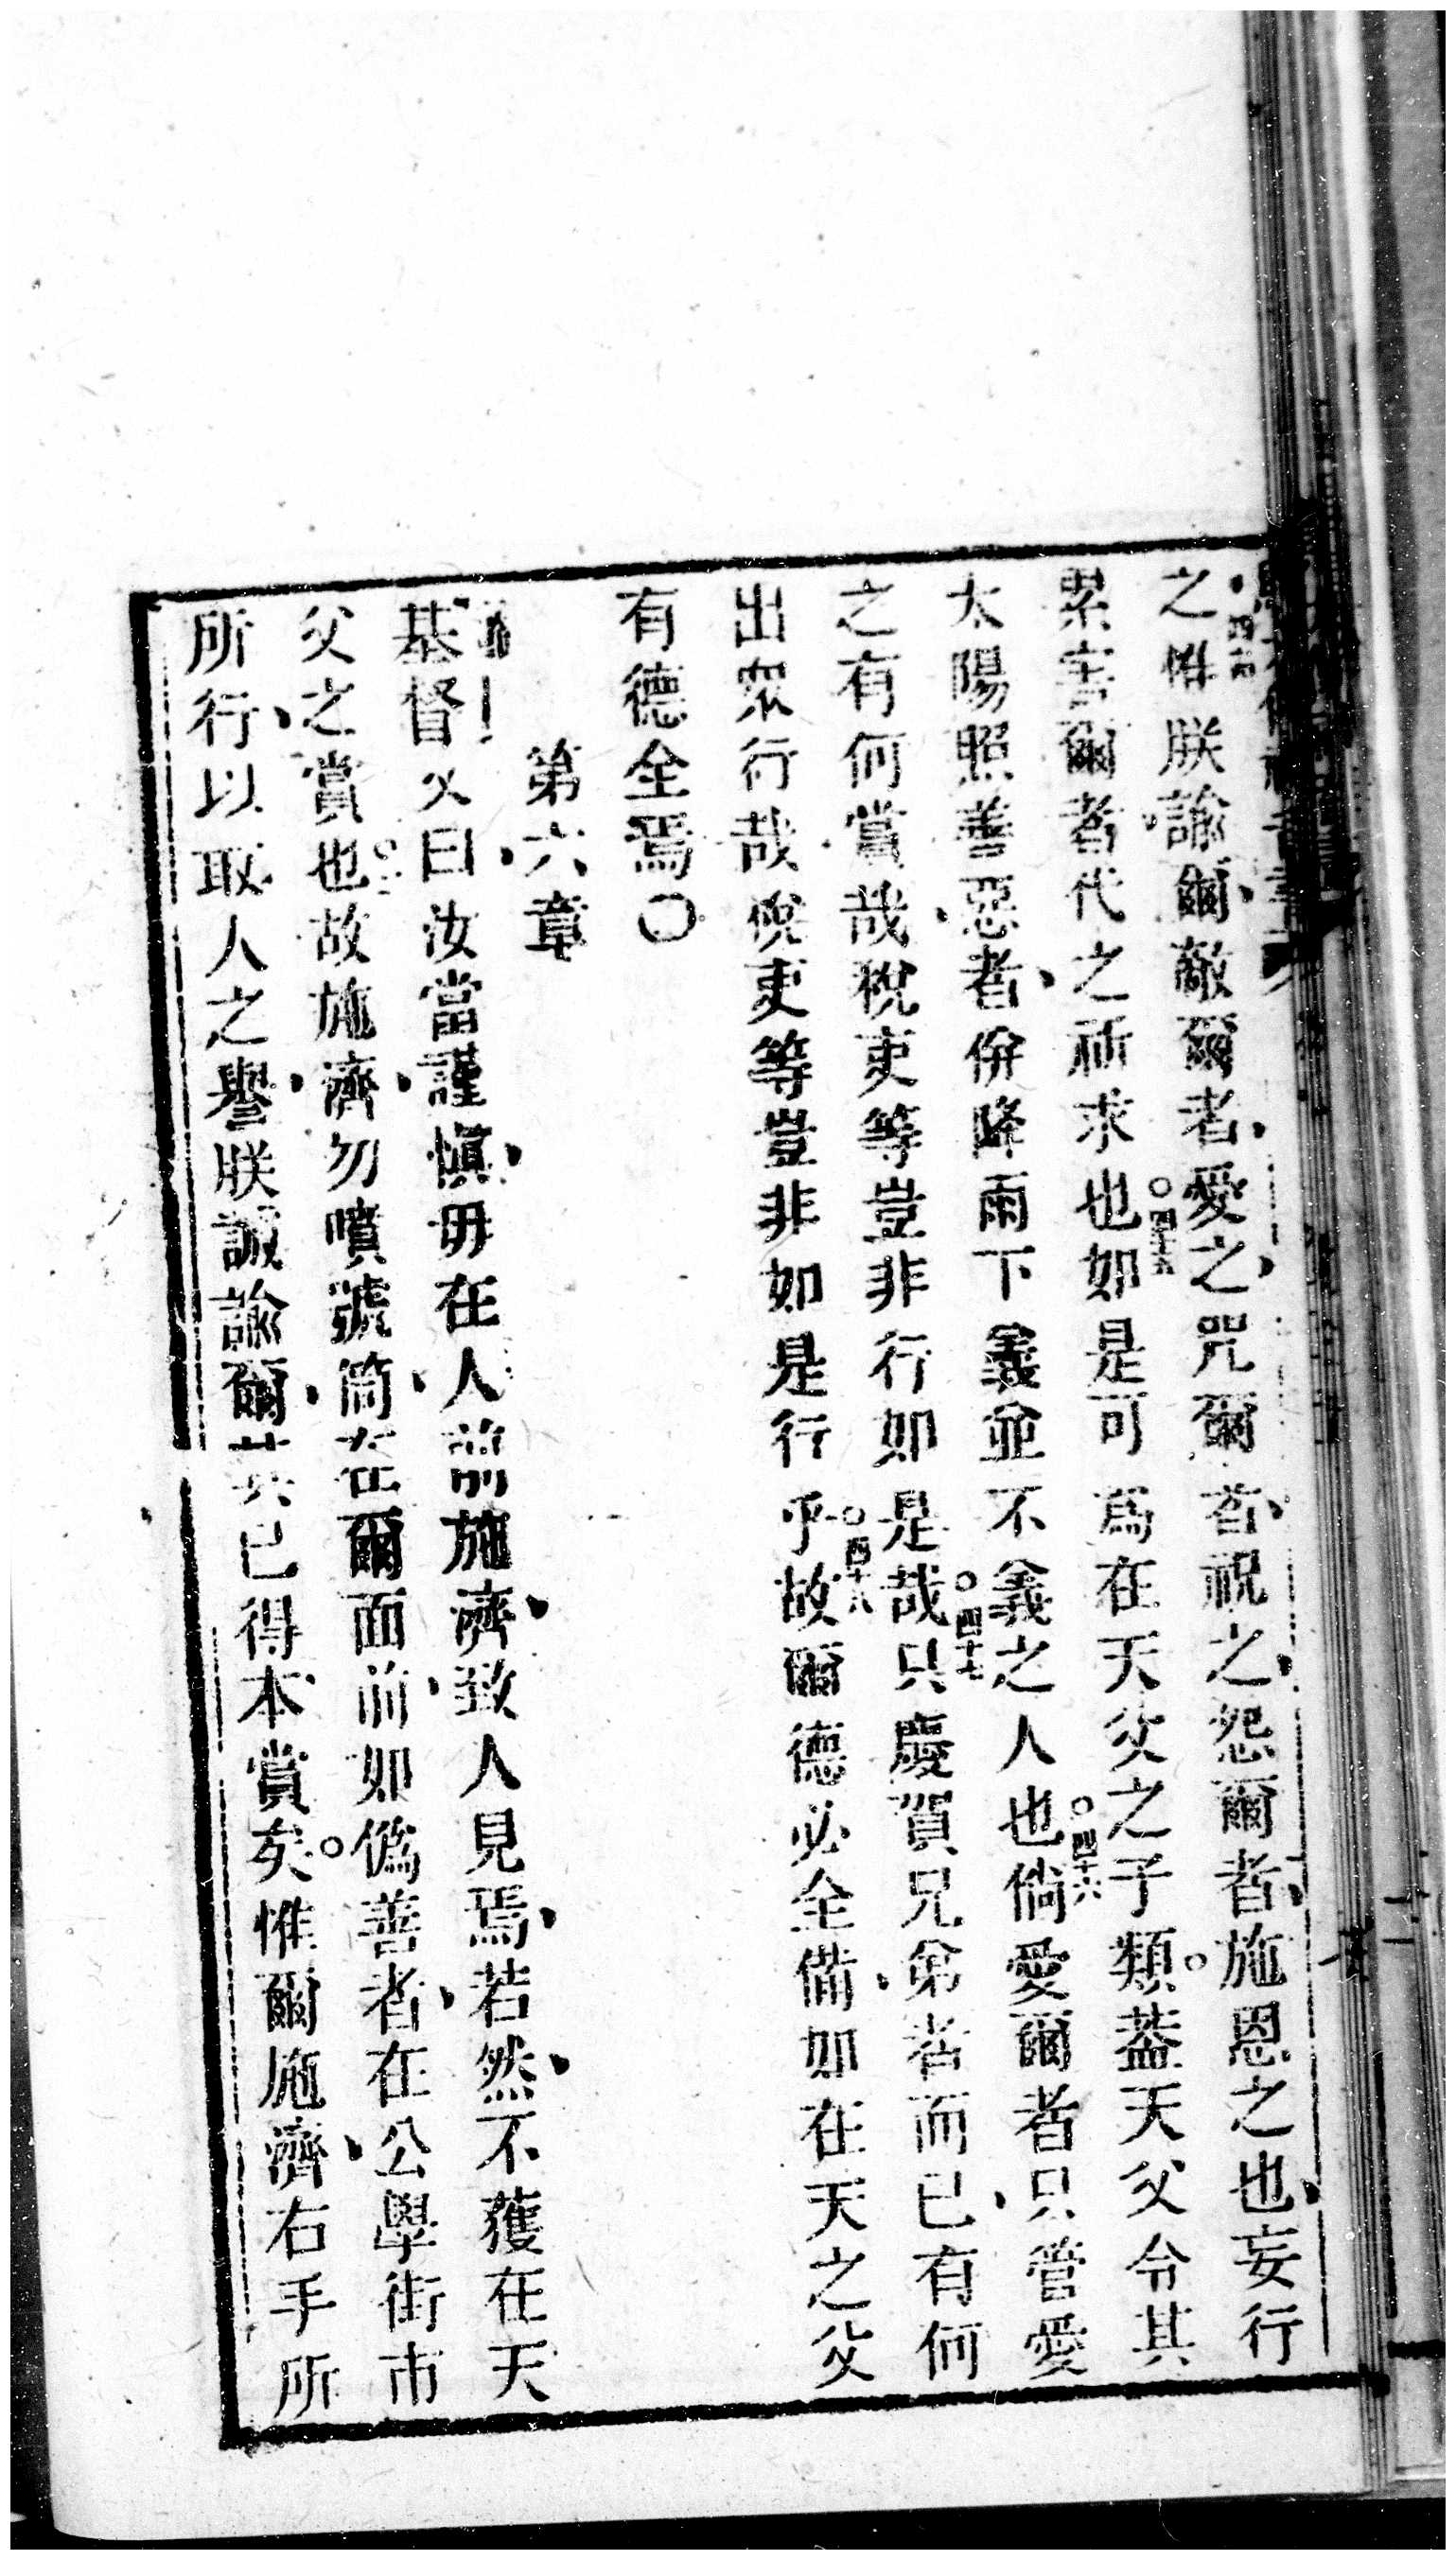 之惟朕諭爾敵爾者愛之咒爾者祝之怨爾者施恩之也妄行
累害爾者代之祈求也如是可為在天父之子類蓋天父令其
太陽照善惡者併降雨下義並不義之人也倘愛爾者只管愛
之有何賞哉稅吏等豈非行如是哉只慶賀兄弟者而已有何
出眾行哉稅吏等豈非如是行乎故爾德必全備如在天之父
有德全焉〇
第六章
基督又曰汝當謹慎毋在人前施濟致人見焉若然不獲在天
父之賞也故施濟勿噴號筒在爾面前如偽善者在公學街市
所行以取人之譽朕誠諭爾其已得本賞矣惟爾施濟右手所